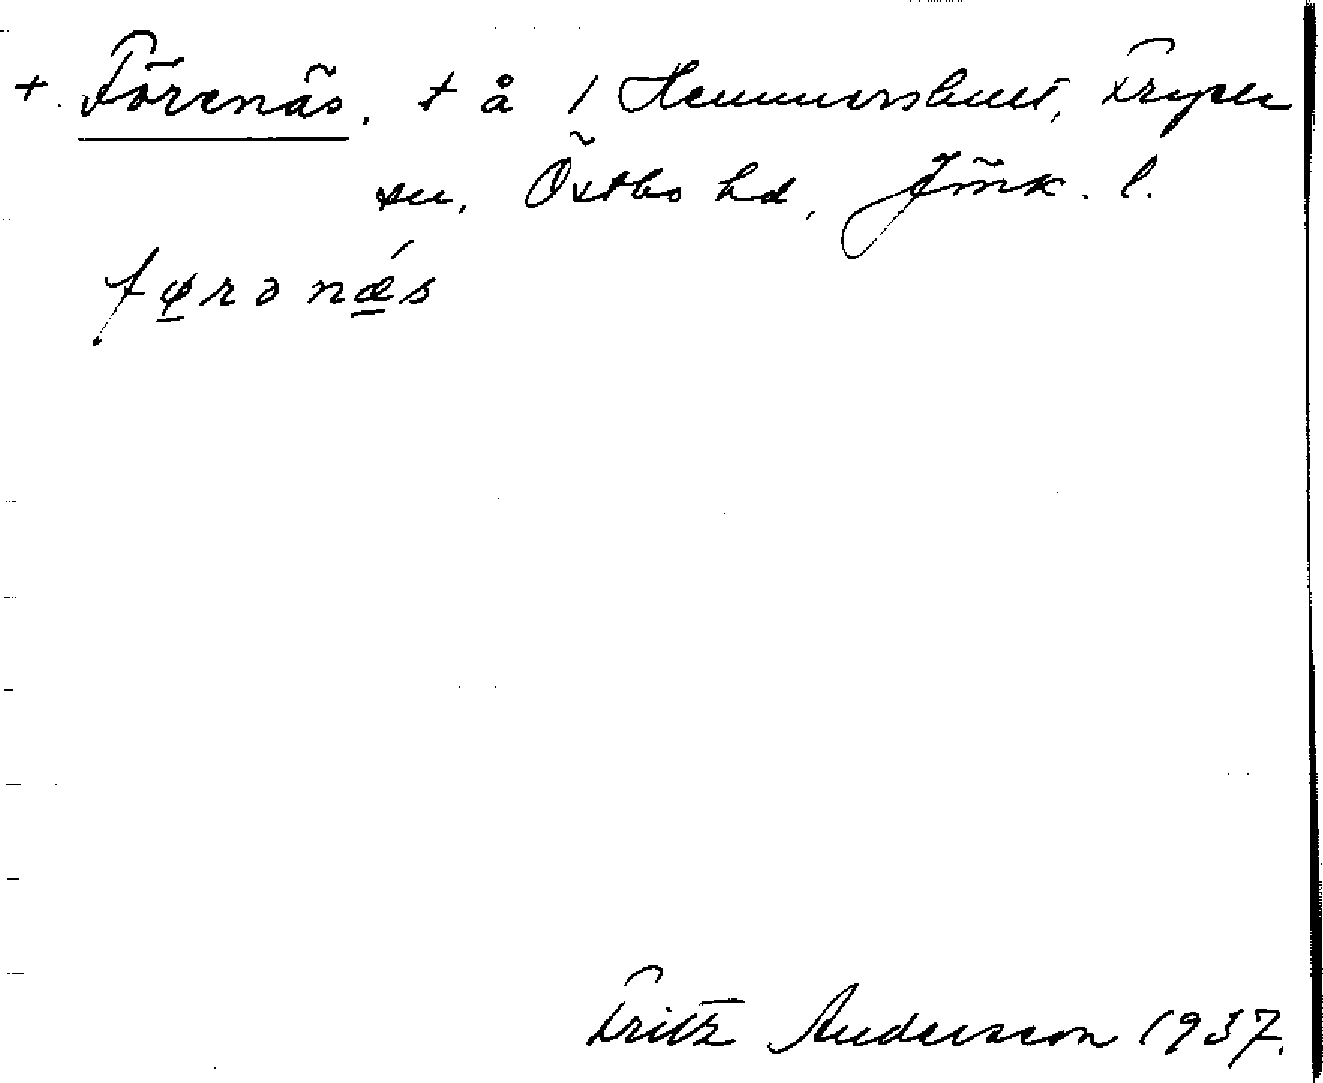 +. Förenäs. t å 1 Hemmershult, Fryele
sn, Östbo hd, Jönk. l.
førənæ´s
Fritz Andersson 1937.